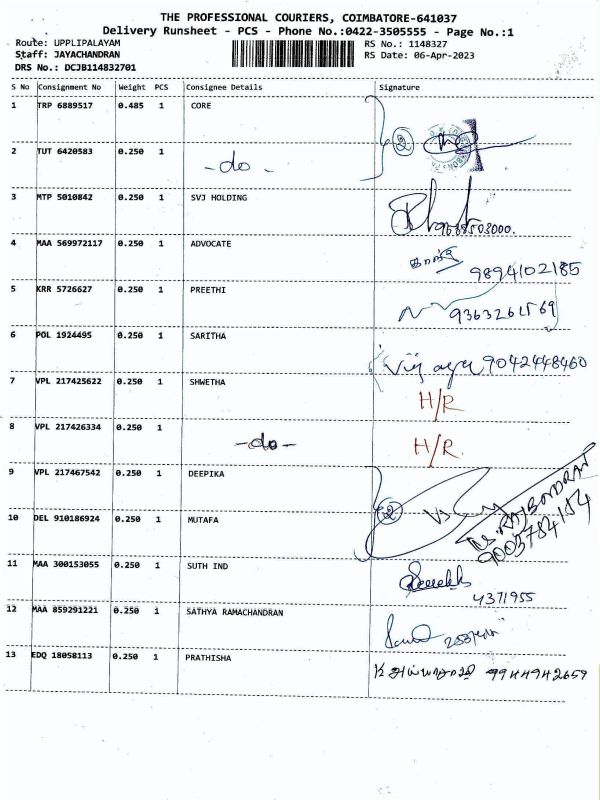 THE PROFESSIONAL COURIERS, COIMBATORE-641037
Delivery Runsheet - PCS - Phone No.:0422-3505555 - Page No.:1
Route: UPPLIPALAYAM RS No.: 1148327
Staff: JAYACHANDRAN RS Date: 06-Apr-2023
DRS No.: DCJB114832701
S No Consignment No Weight PCS Consignee Details Signature
1 TRP 6889517 0.485 1 CORE
2 TUT 6420583 0.250 1 -do-
3 MTP 5010842 0.250 1 SVJ HOLDING
4 MAA 569972117 0.250 1 ADVOCATE 9894102185
5 KRR 5726627 0.250 1 PREETHI 9363261569
6 POL 1924495 0.250 1 SARITHA 9042448460
7 VPL 217425622 0.250 1 SHWETHA H/R
8 VPL 217426334 0.250 1 -do- H/R.
9 VPL 217467542 0.250 1 DEEPIKA
10 DEL 910186924 0.250 1 MUTAFA 9003784154
11 MAA 300153055 0.250 1 SUTH IND 4371955
12 MAA 859291221 0.250 1 SATHYA RAMACHANDRAN
13 EDQ 18058113 0.250 1 PRATHISHA 9944942659